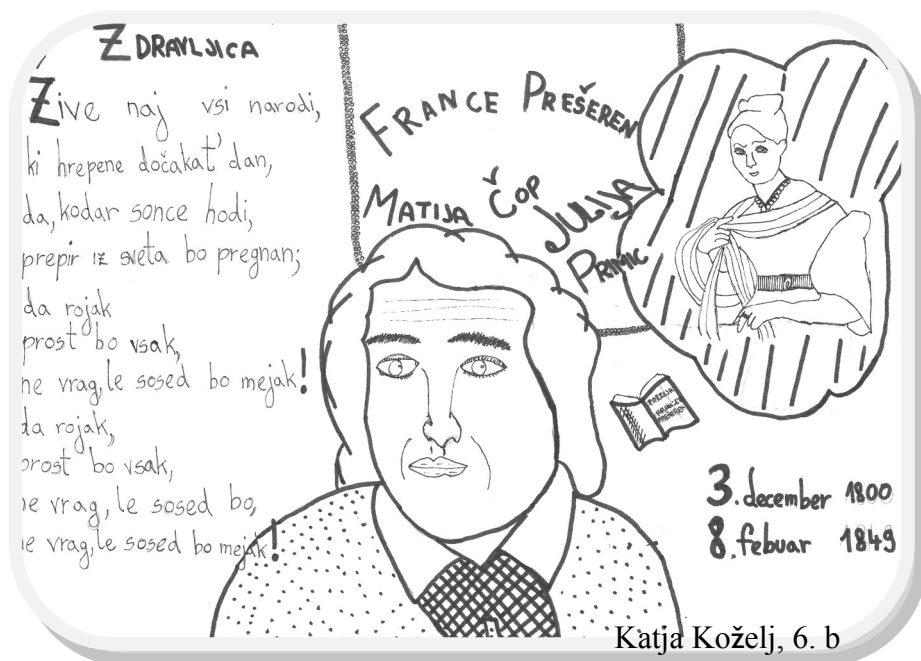 ZDRAVLJICA
Žive naj vsi narodi,
ki hrepene dočakat' dan,
da, kodar sonce hodi,
prepir iz sveta bo pregnan;
da rojak
prost bo vsak,
ne vrag, le sosed bo mejak!
da rojak,
prost bo vsak,
ne vrag, le sosed bo,
ne vrag, le sosed bo mejak!
FRANCE PREŠEREN
MATIJA ČOP
JULIJA
PRIMIC
POEZIJA
FRANCE
PREŠEREN
3. december 1800
8. febuar 1849
Katja Koželj, 6. b